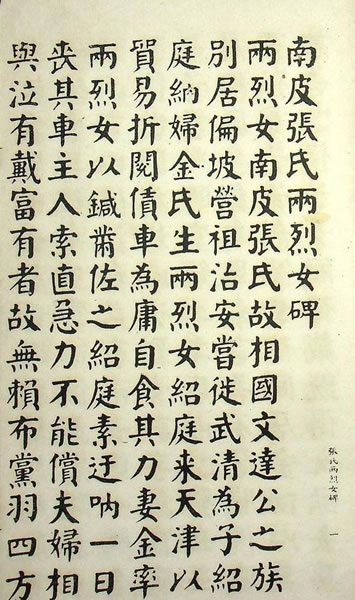 南皮張氏兩烈女碑
兩烈女南皮張氏故相國文達公之族
別居偏坡營祖治安嘗徙武清為子紹
庭納婦金氏生兩烈女紹庭来天津以
貿易折閱債車為庸自食其力妻金率
兩烈女以鍼黹佐之紹庭素迂吶一日
喪其車主人索直急力不能償夫婦相
與泣有戴富有者故無賴布黨羽四方
張氏兩烈女碑 一